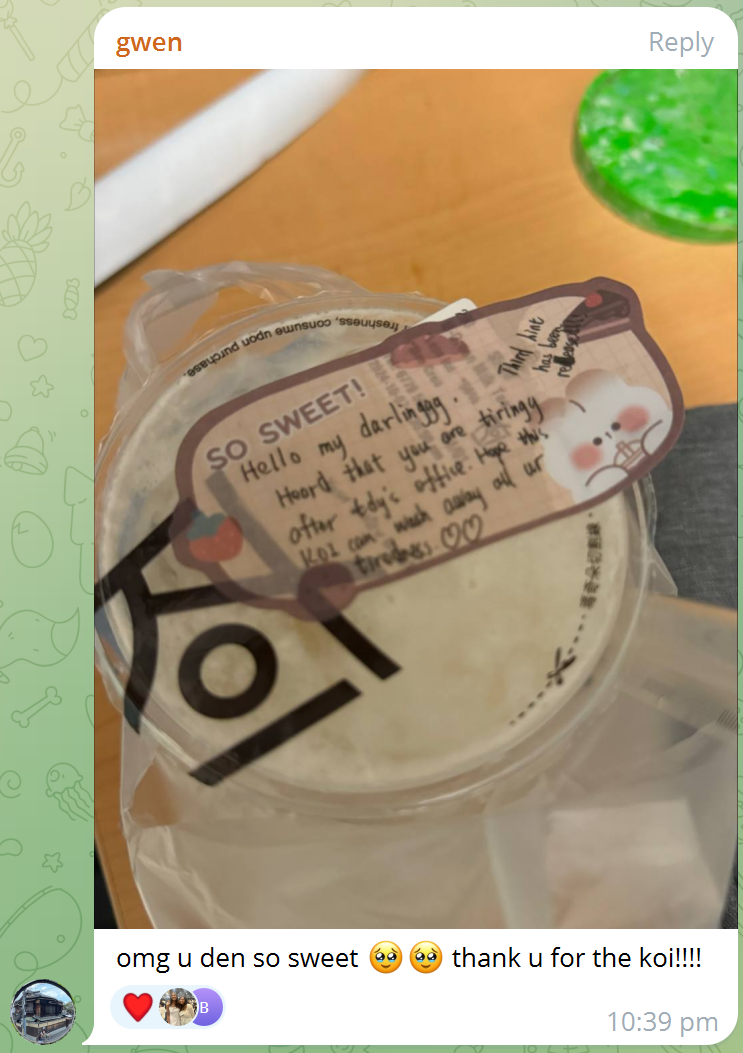 gwen
Reply
freshness, consume upon purchase.
SO SWEET!
Hello my darlinggg.
Hoord that you are tiringy
after tdy's office. Hope this
KOI can wash away all ur
tiredness. ♡♡
Third hint
has been
released!!!
KOI
omg u den so sweet 🥹🥹 thank u for the koi!!!!
❤️ B
10:39 pm